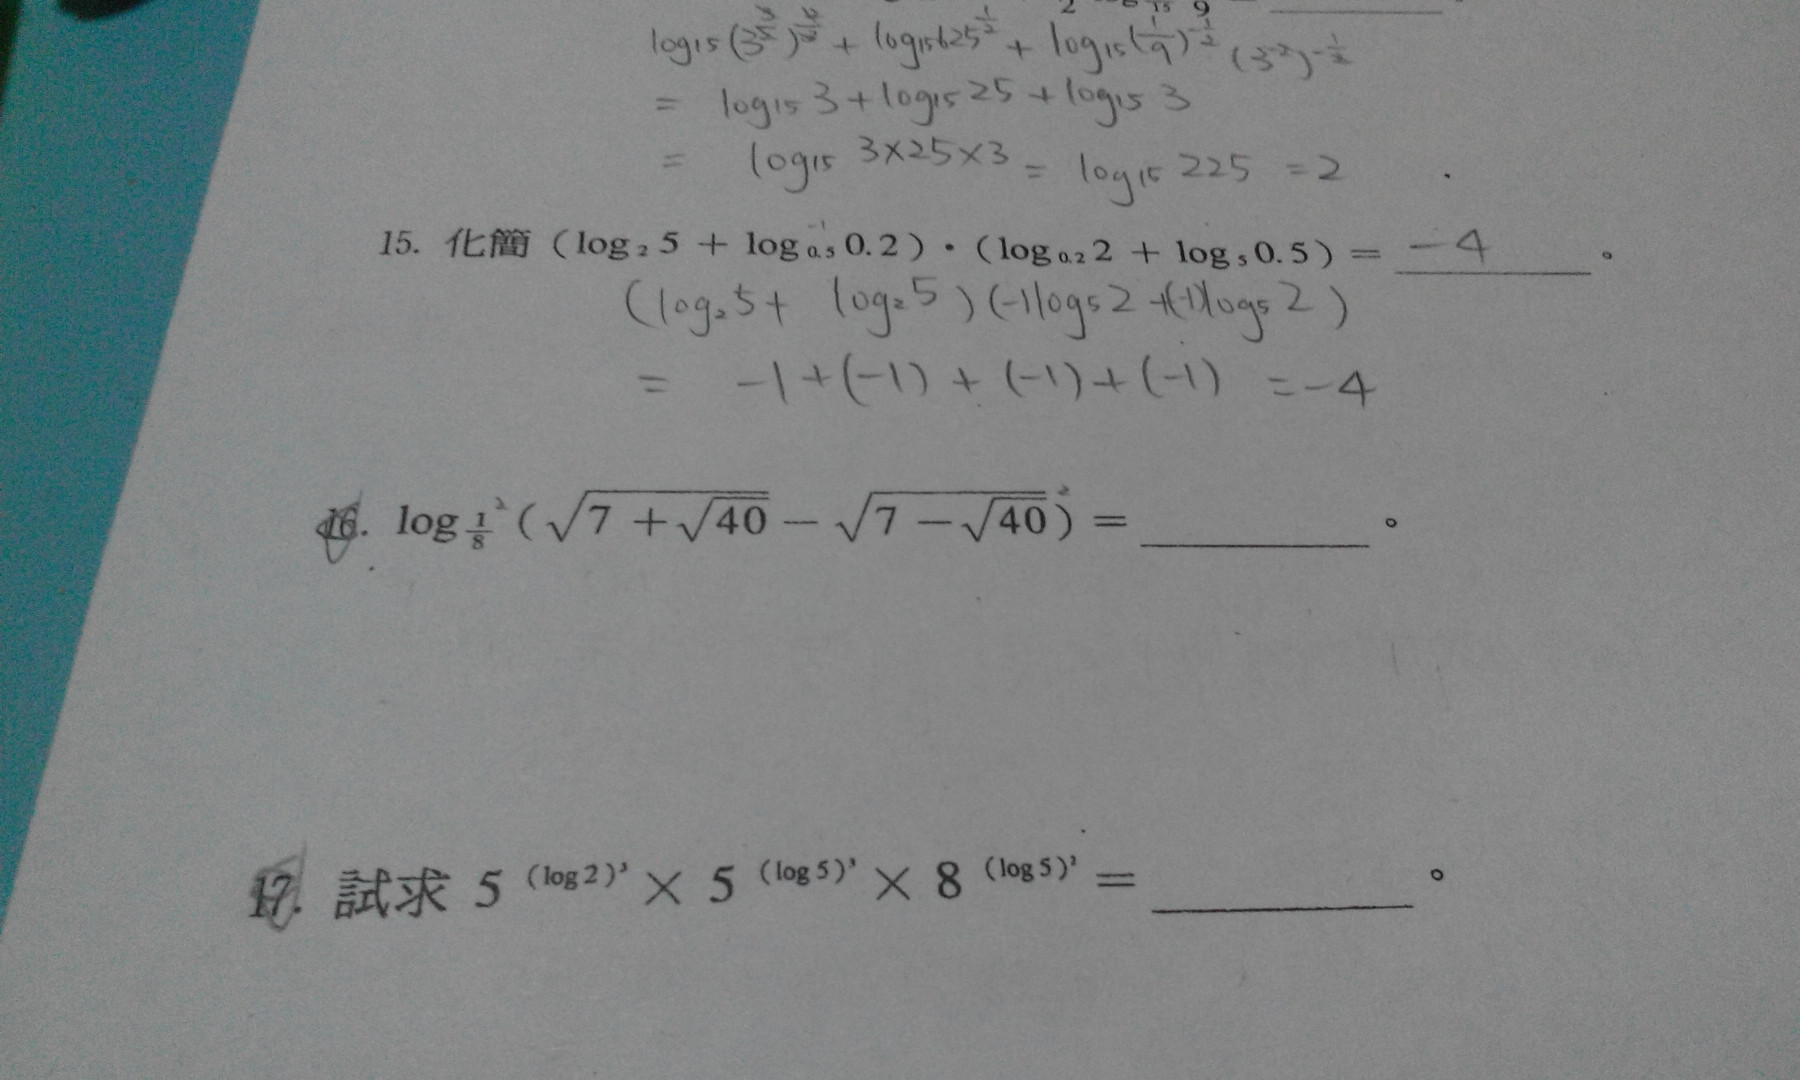 2 15 9
log15(3^{\frac{}{5}})^{} + log15 625^{\frac{1}{2}} + log15(\frac{1}{9})^{-\frac{1}{2}} (3^{-2})^{-\frac{1}{2}}
= log15 3 + log15 25 + log15 3
= log15 3×25×3 = log15 225 = 2
15. 化簡 (log₂ 5 + log₀.₅ 0.2) · (log₀.₂ 2 + log₅ 0.5) = -4 。
(log₂5 + log₂5)(-1)log5 2 +(-1)log5 2)
= -1+(-1) + (-1)+(-1) = -4
16. log_{\frac{1}{8}}² (√(7 + √40) − √(7 − √40))² = ______ 。
17. 試求 5^{(log2)³} × 5^{(log5)³} × 8^{(log5)²} = ______ 。